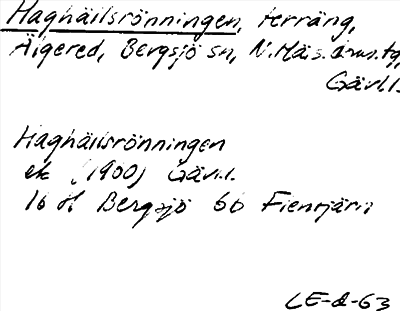 Haghällsrönningen, terräng,
Älgered, Bergsjö sn, N. Häls.
Gävl.l.
Haghällsrönningen
ek (1900) Gävl.l.
16 H Bergsjö 6b Fientjärn
LE-d-63